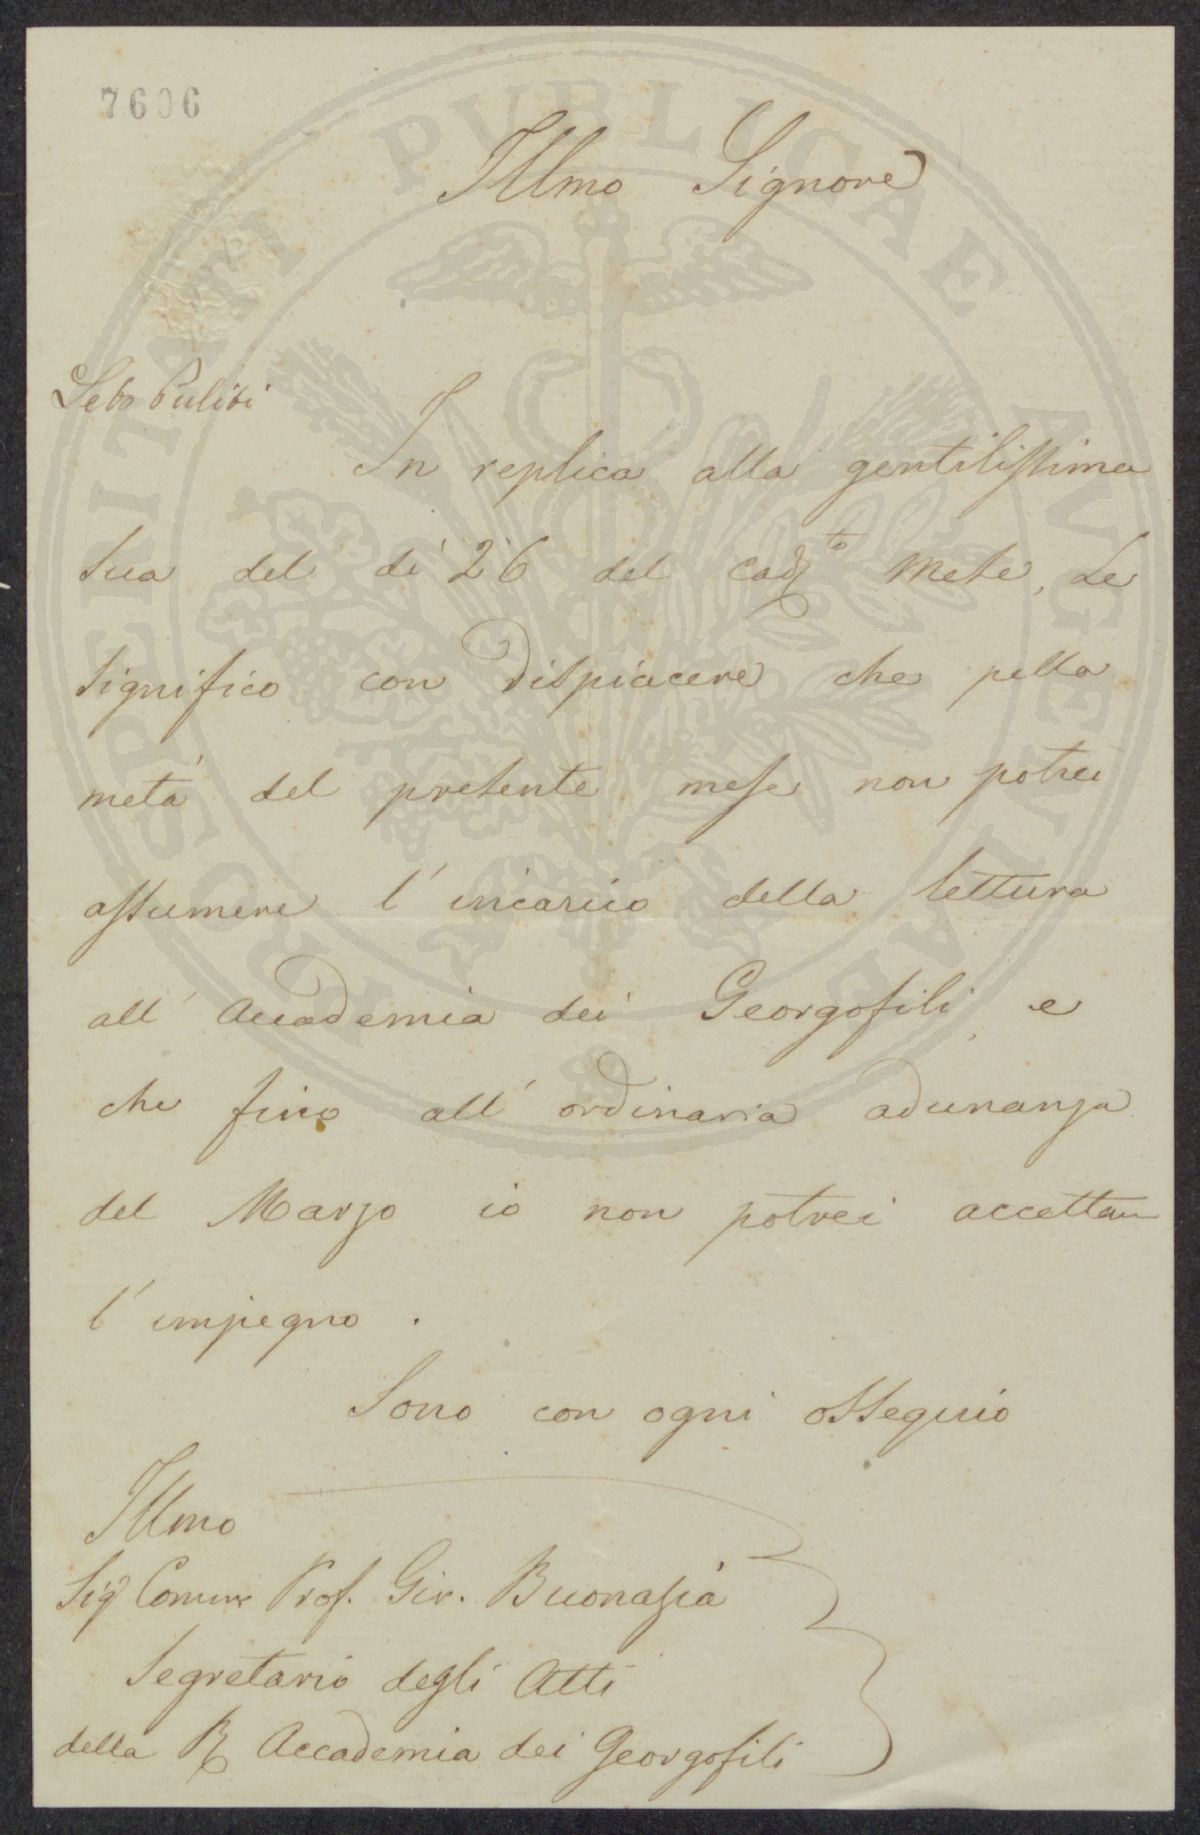 7606
Illmo Signore
Leto Puliti
In replica alla gentilissima
sua del di 26 del cadto mese, Le
significo con dispiacere che nella
metà del presente mese non potrei
assumere l'incarico della lettura
all'Accademia dei Georgofili, e
che fino all'ordinaria adunanza
del Marzo io non potrei accettare
l'impegno.
Sono con ogni ossequio
Illmo
Sig Comme Prof. Gir. Buonazia
Segretario degli Atti
della R Accademia dei Georgofili
PROSPERITATI PUBLICAE AUGENDAE